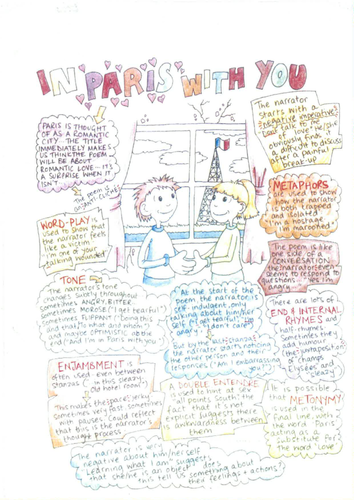 IN PARIS WITH YOU
PARIS IS THOUGHT
OF AS A ROMANTIC
CITY. THE TITLE
IMMEDIATELY MAKES
US THINK THE POEM
WILL BE ABOUT
ROMANTIC LOVE - IT'S
A SURPRISE WHEN IT
ISN'T
The poem is
The narrator
starts with a
negative imperative
"Don't talk to me
of love" He/she
obviously finds it
difficult to discuss
after a painful
break-up
METAPHORS
are used to show
how the narrator
is both trapped
and isolated
"I'm a hostage
I'm marooned"
WORD-PLAY is
used to show that
the narrator feels
like a victim
"I'm one of your
talking wounded"
The poem is like
one side of a
CONVERSATION
the narrator even
seems to respond to
questions "Yes I'm
angry"
TONE
The narrator's tone
changes subtly throughout
sometimes ANGRY, BITTER
sometimes MOROSE ("I get tearful")
sometimes FLIPPANT ("doing this
and that, to what and whom")
and maybe OPTIMISTIC at the
end ("And I'm in Paris with you")
At the start of the
poem the narrator is
self-indulgent, only
talking about him/her
SELF ("I get tearful", "I'm
angry", "I don't care")
But by the LAST STANZAS
the narrator starts noticing
the other person and their
responses ("Am I embarrassing
you?")
There are lots of
END & INTERNAL
RHYMES and
half-rhymes.
Sometimes they
add humour
(the juxtaposition
of Champs
Elysees and
sleazy)
ENJAMBMENT is
often used even between
stanzas ("in this sleazy
Old hotel room")
This makes the pace very
sometimes very fast, sometimes
with pauses. Could reflect
that this is the narrator's
thought process
A DOUBLE ENTENDRE
is used to hint at sex
"all points south", the
fact that it's not
explicit suggests there
is awkwardness between
them
It is possible
that METONYMY
is used in the
final line with
the word 'Paris'
acting as a
substitute for
the word 'love'
The narrator is very
negative about him/herself
"Learning what I am" suggests
that she/he is an object - does
this tell us something about
their feelings & actions?